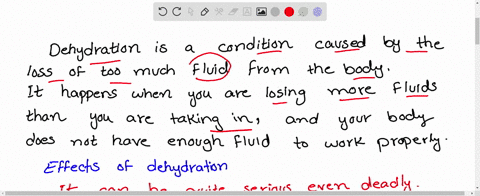 Dehydration is a condition caused by the
loss of too much fluid from the body.
It happens when you are losing more fluids
than you are taking in, and your body
does not have enough fluid to work properly.
Effects of dehydration
It can be quite serious even deadly.